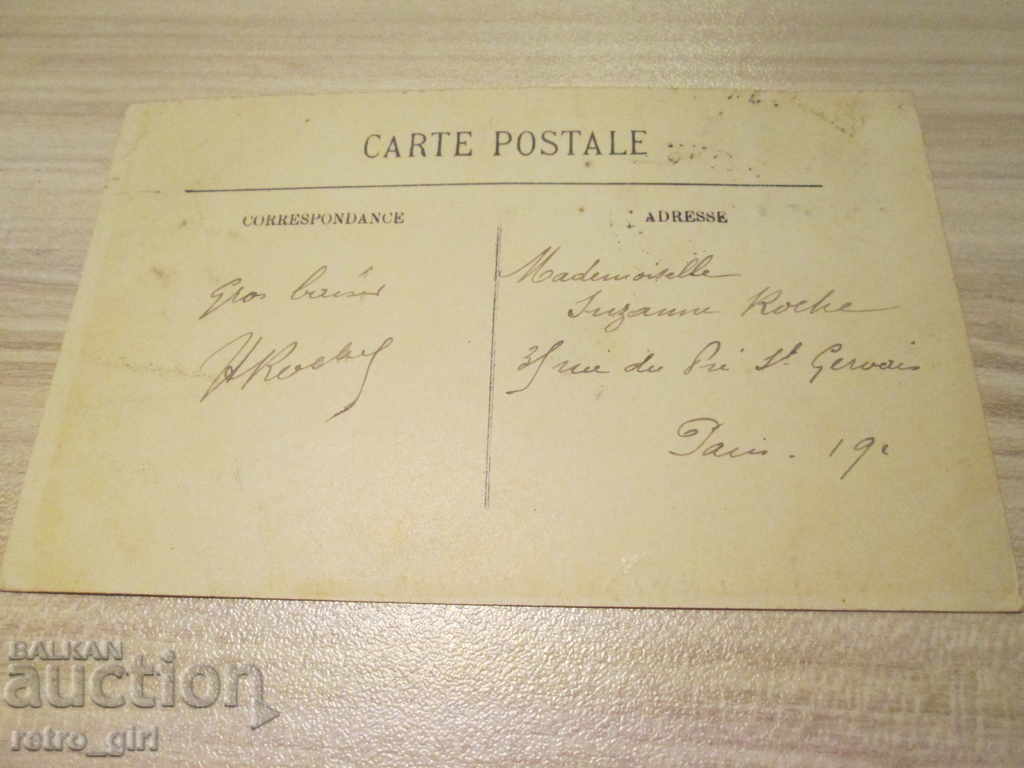 CARTE POSTALE
CORRESPONDANCE
ADRESSE
Gros baiser
HRoche
Mademoiselle
Suzanne Roche
35 rue du Pré St Gervais
Paris. 19e
BALKAN
auction
retro_girl